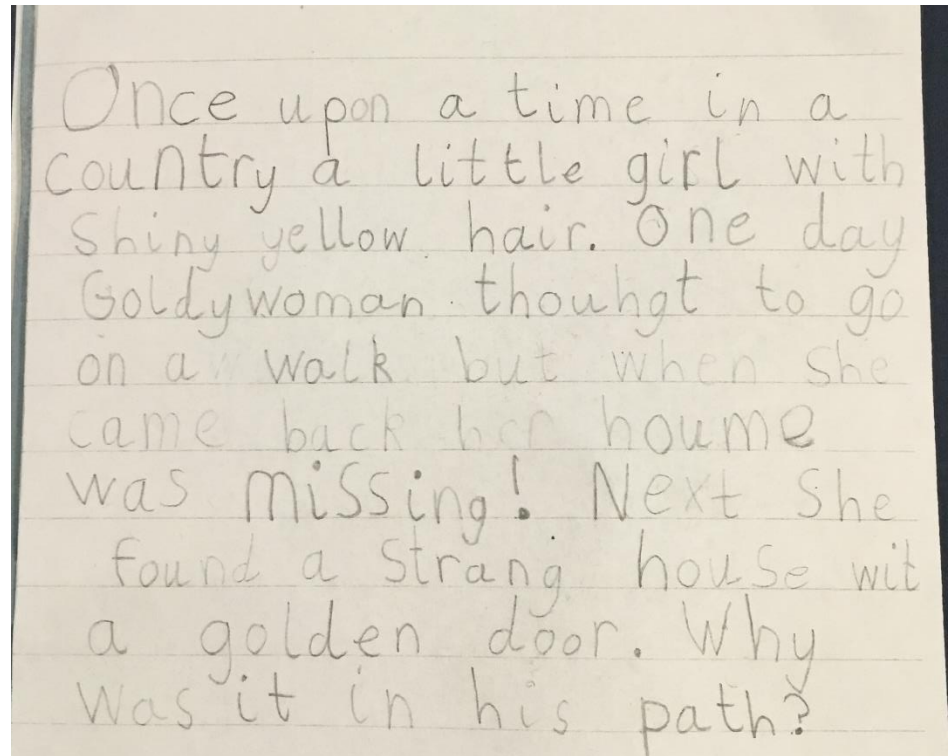 Once upon a time in a
country a little girl with
Shiny yellow hair. One day
Goldywoman thouhgt to go
on a walk but when She
came back her houme
was missing! Next She
found a Strang house wit
a golden door. Why
was it in his path?